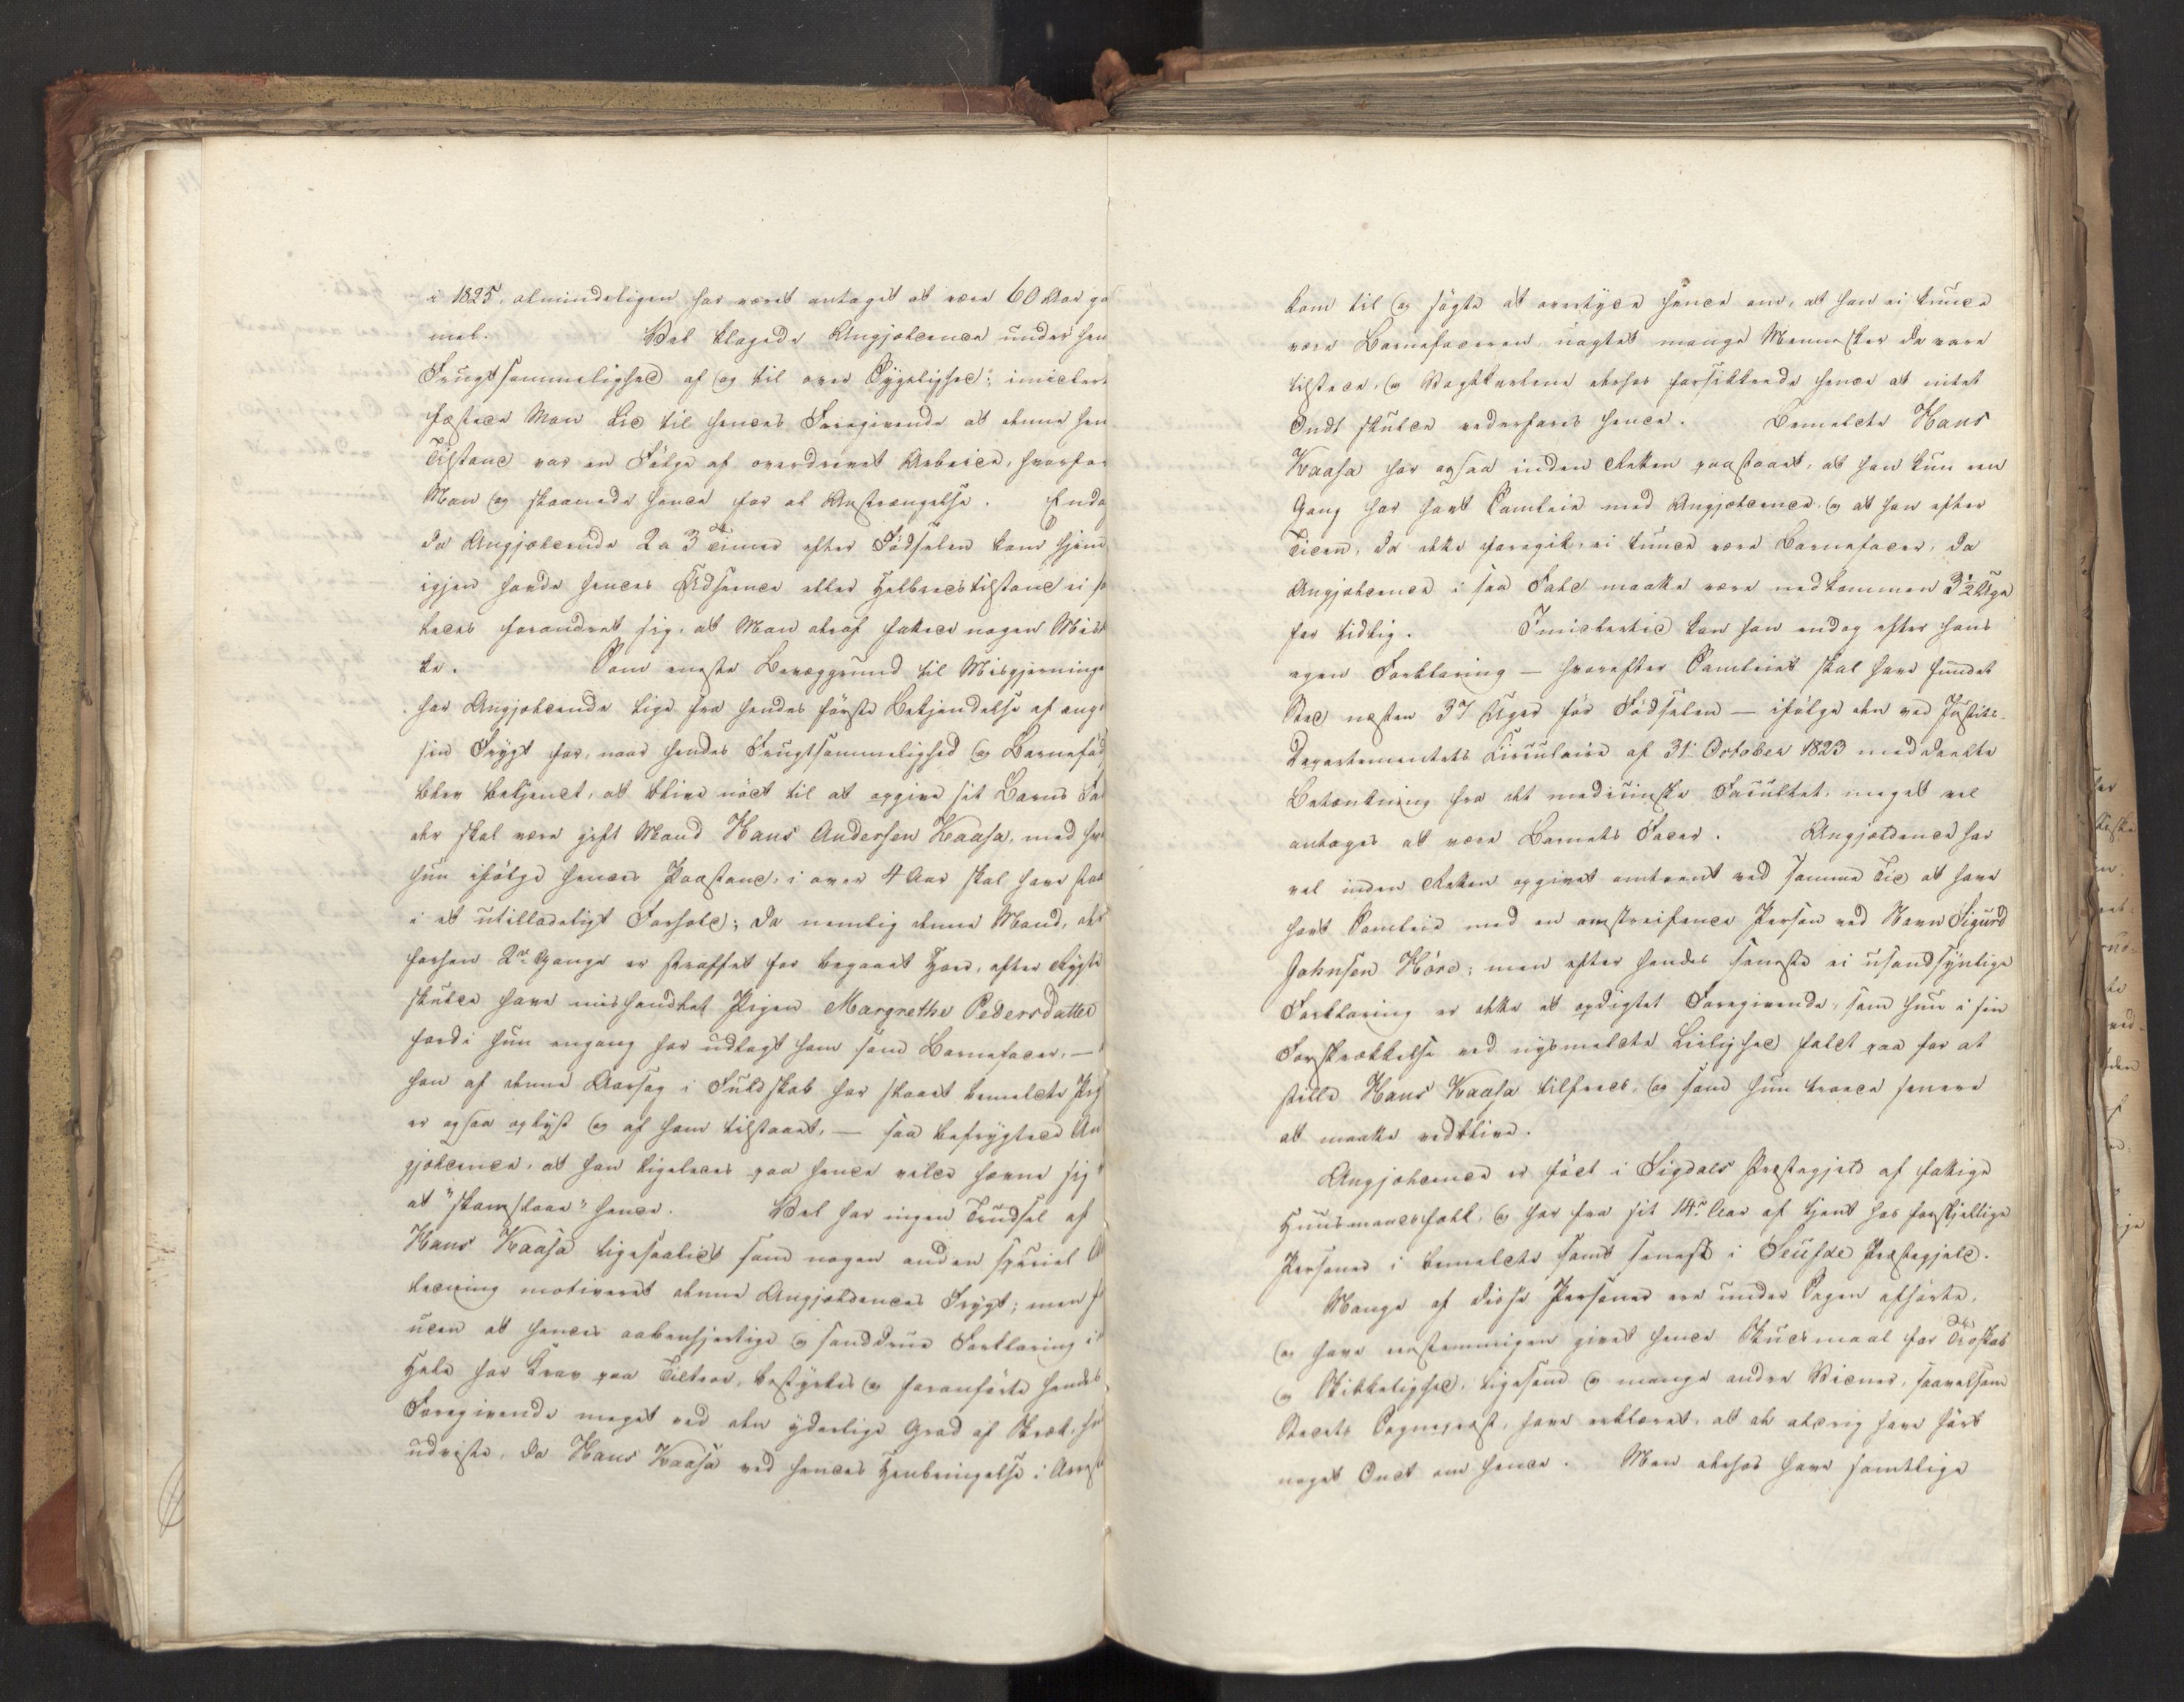 i 1825, almindeligen har været antaget at være 60 Aar ga
mel. Vel klagede Angjældende under hen
Frugtsommelighed af og til over Sygelighed; imidlert
fæstede Man Lid til hendes Foregivende at denne hen
Tilstand var en Følge af overdrevet Arbeide, hvorfor
Man og skaanede hende for al Anstrængelse. Endog
da Angjældende 2 a 3 Timer efter Fødselen kom hjem
igjen havde hendes Udseende eller Helbredstilstand ei sa
ledes forandret sig, at Man deraf fattede nogen Mis
ke. Som eneste Bevæggrund til Misgjerninge
har Angjældende lige fra hendes første Bekjendelse af angi
sin Frygt for, naar hendes Frugtsommelighed og Barnefød
blev bekjendt, at blive nødt til at opgive sit Barns Fad
der skal være gift Mand Hans Andersen Kaasa, med hv
hun ifølge hendes Paastand, i over 4 Aar skal have staa
i et utilladeligt Forhold; da nemlig denne Mand, der
forhen 2de Gange er straffet for begaaet Hoer, efter Rygte
skulde have mishandlet Pigen Margrethe Pedersdatter
fordi hun engang har udlagt ham som Barnefader, —
han af denne Aarsag i Fuldskab har slaaet bemeldte Pig
er ogsaa oplyst og af ham tilstaaet, — saa befrygtede An
gjældende, at han ligeledes paa hende vilde hævne sig
at "skamslaae" hende. Vel har ingen Trudsel af
Hans Kaasa ligesaalidt som nogen anden speciel A
ledning motiveret denne Angjældendes Frygt; men f
uden at hendes aabenhjertige og sanddrue Forklaring i
Hele har Krav paa Tiltroe, bestyrkes og foranførte hendes
Foregivende meget ved den yderlige Grad af Skræk, hu
udviste, da Hans Kaasa ved hendes Henbringelse i Arrest
kom til og søgte at overtyde hende om, at han ei kunde
være Barnefaderen, uagtet mange Mennesker da vare
tilstede, og Vagtkarlene derhos forsikkrede hende at intet
Ondt skulde vederfares hende. Bemeldte Hans
Kaasa har ogsaa inden Retten paastaaet, at han kun een
Gang har havt Samleie med Angjældende, og at han efter
Tiden, da dette foregik, ei kunde være Barnefader, da
Angjældende i saa Fald maatte være nedkommen 3½ Uge
for tidlig. Imidlertid kan han endog efter hans
egen Forklaring — hvorefter Samleiet skal have fundet
Sted næsten 37 Uger før Fødselen — ifølge den ved Justits-
Departementets Circulaire af 31 October 1823 meddeelte
Betænkning fra det medicinske Facultet, meget vel
antages at være Barnets Fader. Angjældende har
vel inden Retten opgivet omtrent ved samme Tid at have
havt Samleie med en omstreifende Person ved Navn Sigurd
Johnsen Hörd; men efter hendes seneste ei usandsynlige
Forklaring er dette et opdigtet Foregivende, som hun i sin
Forskrækkelse ved nysmeldte Leilighed faldt paa for at
stille Hans Kaasa tilfreds, og som hun troede senere
at maatte vedblive.
Angjældende er født i Sigdals Præstegjeld af fattige
Huusmandsfolk, og har fra sit 14de Aar af tjent hos forskjellige
Personer i bemeldte samt senest i Seufde Præstegjeld.
Mange af disse Personer ere under Sagen afhørte,
og have eenstemmigen givet hende Skudsmaal for Troskab
og Skikkelighed, ligesom og mange andre Vidner, saavelsom
Stedets Sognepræst, have erklæret, at de aldrig have hørt
noget Ondt om hende. Men derhos have samtlige